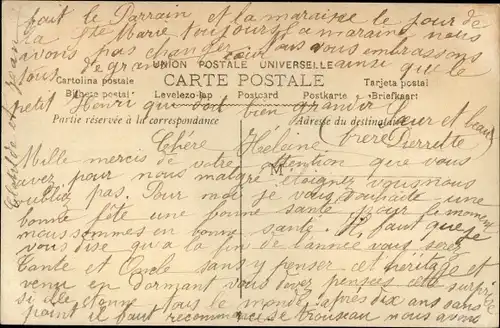 fait le Parrain et la maraine le jour de
la Ste Marie toujours a maraine nous
avons pas changer tous vous embrassons
tous de grand ainsi que le
UNION POSTALE UNIVERSELLE
CARTE POSTALE
Cartolina postale Tarjeta postal
Bilhete postal Levelezo-lap Postcard Postkarte Briefkaart
petit Henri qui doit bien grandir
Partie réservée à la correspondance Adresse du destinataire
Sœur et beau
frère Pierrette
Clotilde et Jean
Chére Héleine
Mille mercis de votre attention que vous
avez pour nous malgré éloignez vous nous
oubliez pas. Pour moi je vous souhaite une
M
bonne fête une bonne santé pour le moment
nous sommes en bonne santé. Il faut que je
vous dise qu'a la fin de l'année vous serez
Tante et Oncle sans y penser cet héritage et
venu en dormant vous devez pensés cette surprise
si elle étonne tous le monde, après dix ans sans
point il faut recommencé se trousseau nous avons